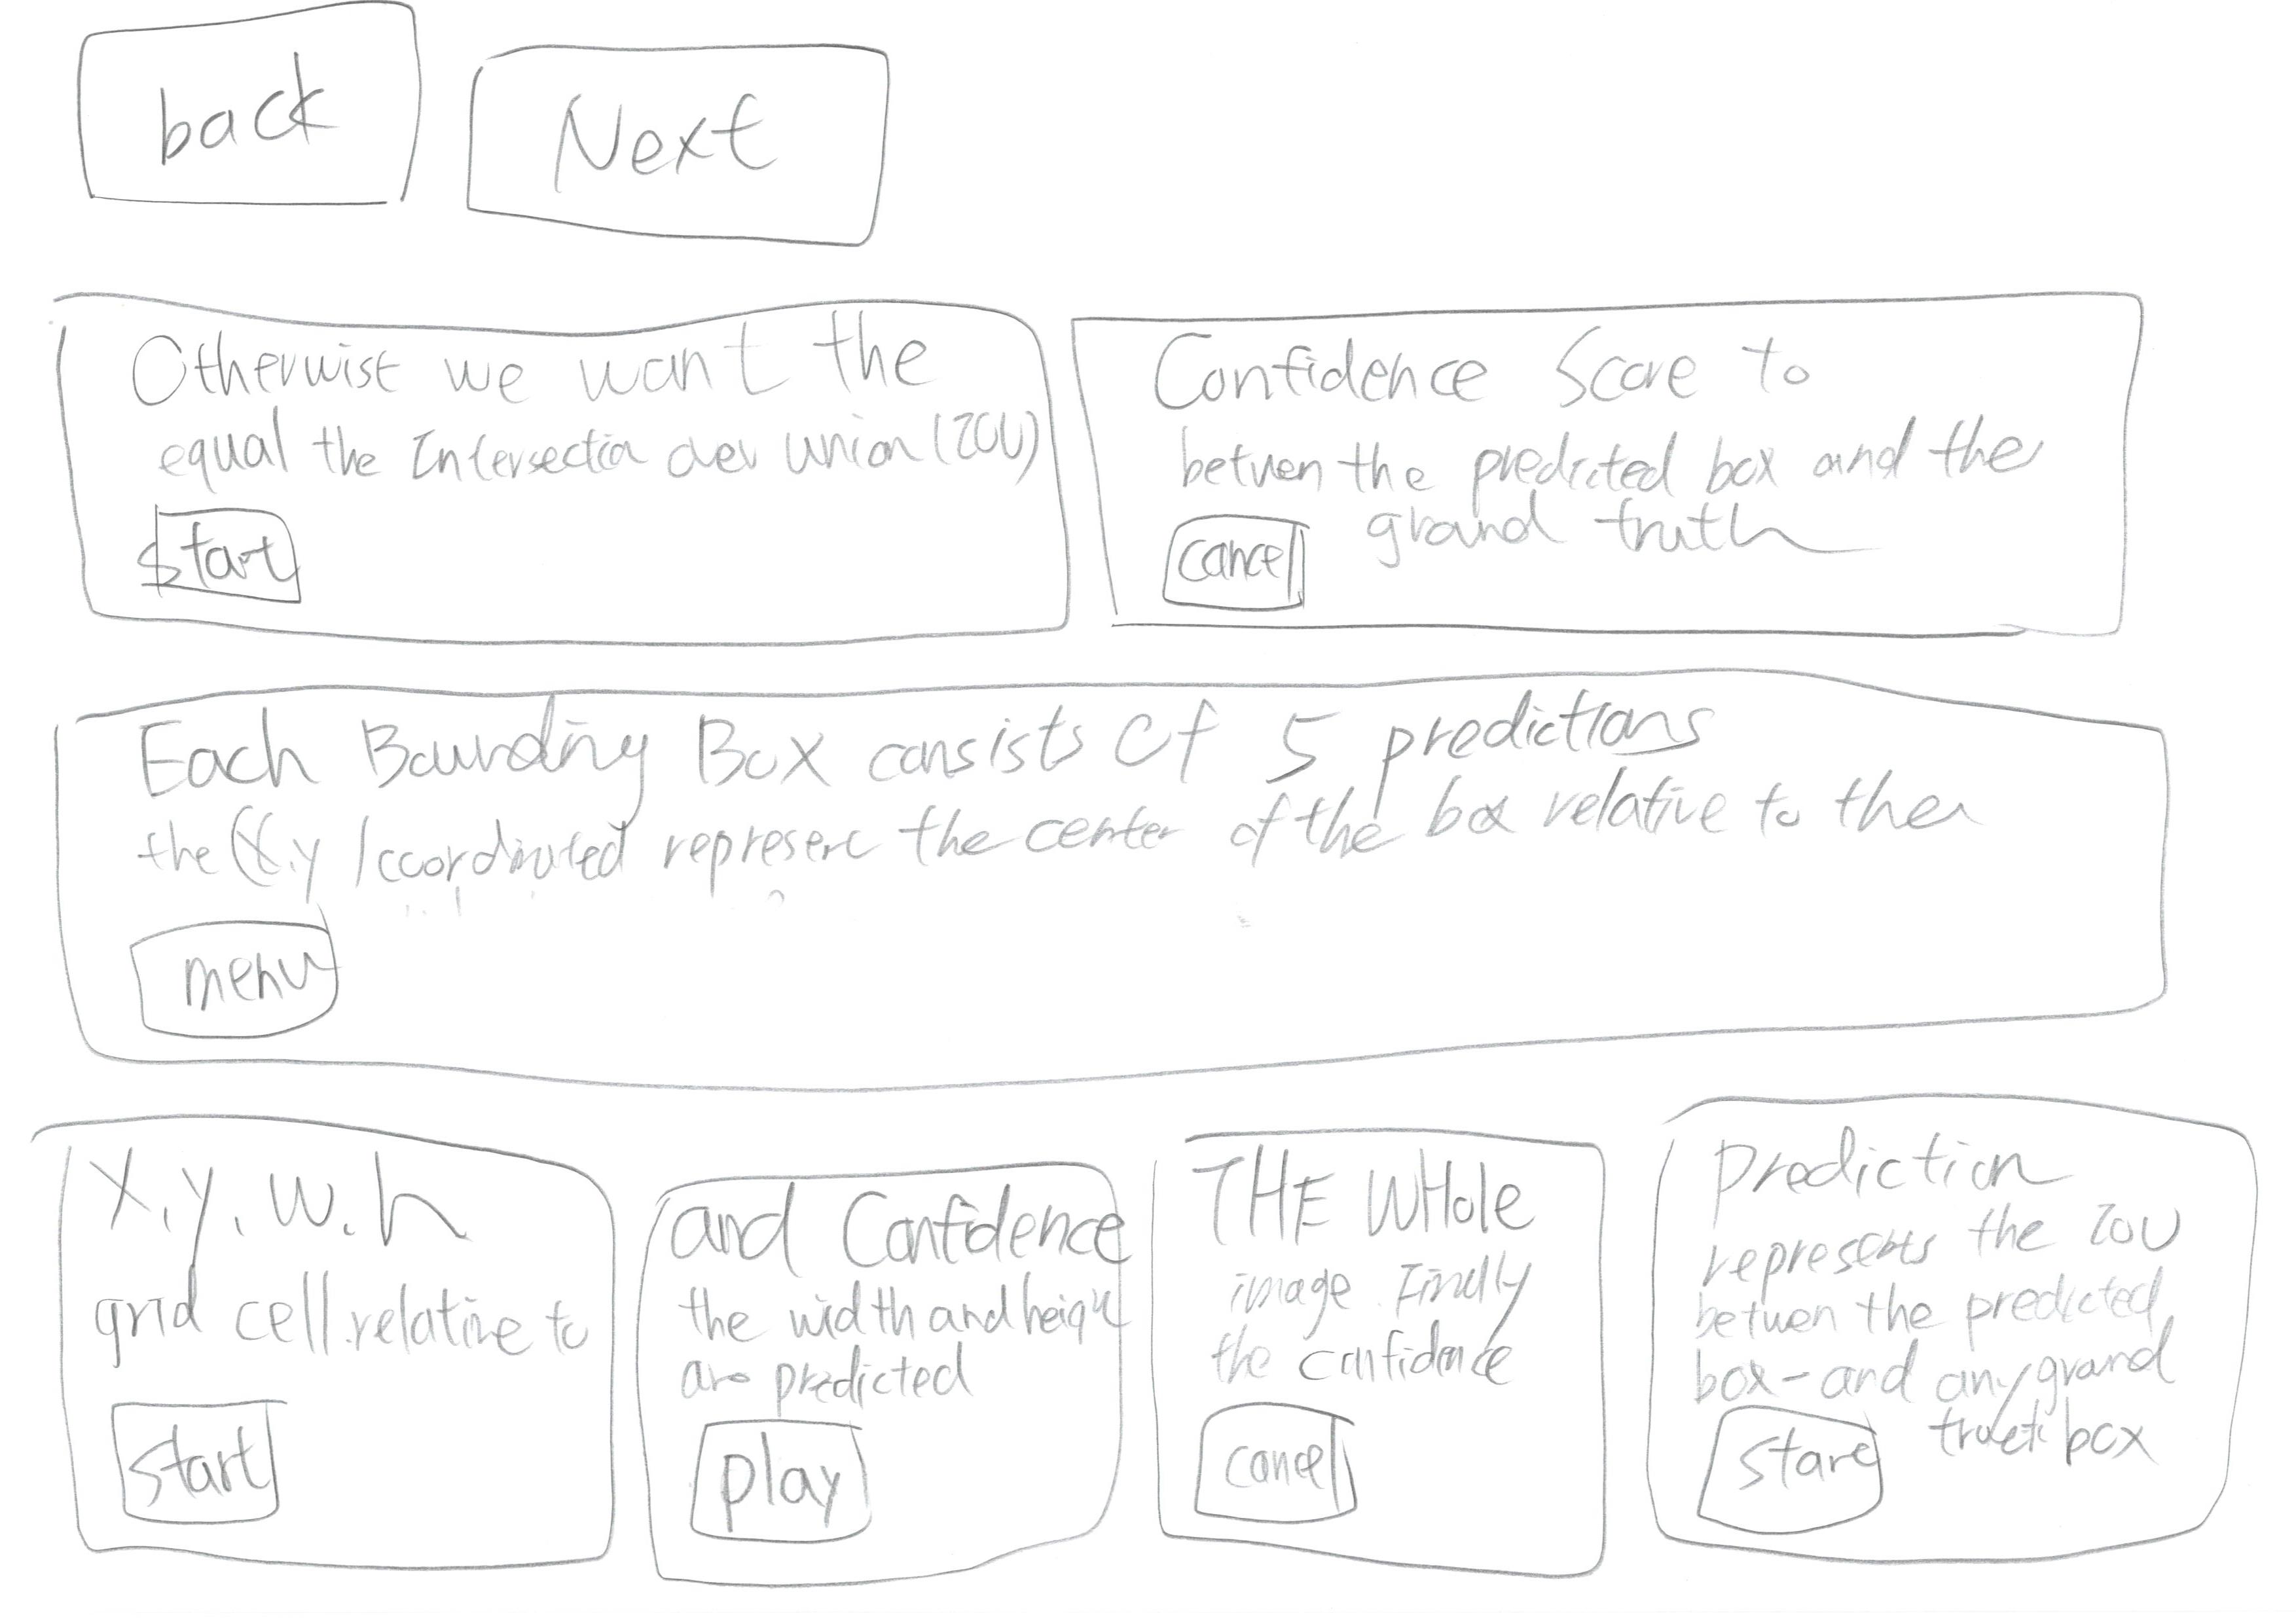 back
Next
Otherwist we want the
equal the Intersection over union (IOU)
start
Confidence Score to
betwen the predicted box and the
ground truth
cancel
Each Bounding Box consists of 5 predictions
the (X.y) coordinated represent the center of the box relative to the
menu
X.y.w.h
grid cell.relative to
start
and Confidence
the width and height
are predicted
play
THE WHole
image. Finully
the confidence
cancel
Prediction
represents the IOU
betwen the predicted
box-and any ground
box